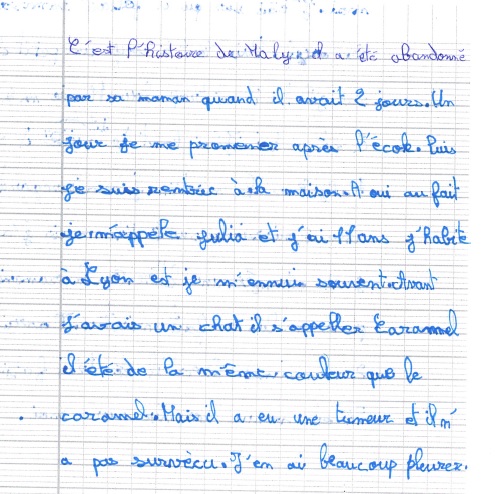 C'est l'histoire de Maly il a été abandonné
par sa maman quand il avait 2 jours. Un
jour je me promener après l'école. Puis
je suis rentrée à la maison. A oui au fait
je m'appèle Julia et j'ai 11 ans j'habite
à Lyon et je m'ennuis souvent. Avant
j'avais un chat il s'appeller Caramel
il été de la même couleur que le
caramel. Mais il a eu une tumeur et il n'
a pas survècu. J'en ai beaucoup pleurer.